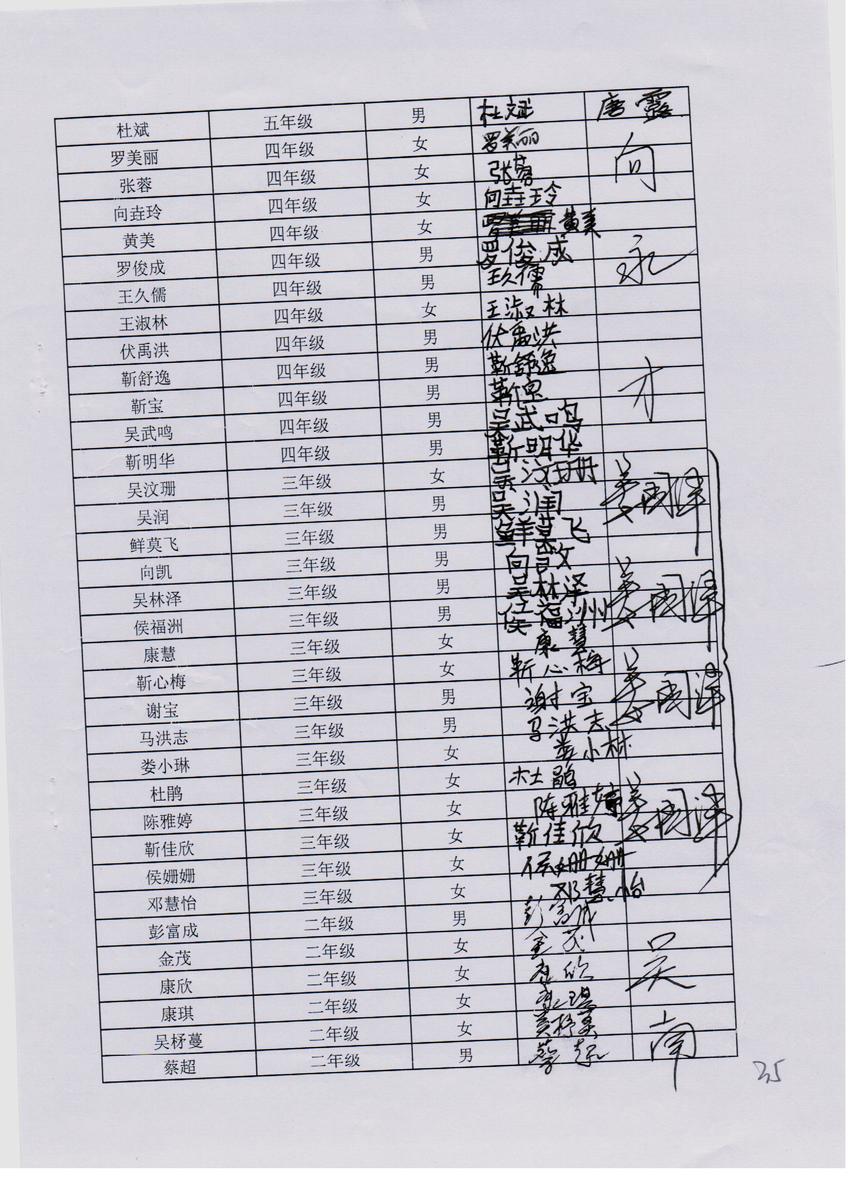 杜斌 五年级 男 杜斌 唐露
罗美丽 四年级 女 罗美丽
张蓉 四年级 女 张蓉 向
向垚玲 四年级 女 向垚玲
黄美 四年级 女 黄美
罗俊成 四年级 男 罗俊成 永
王久儒 四年级 男 王久儒
王淑林 四年级 女 王淑林
伏禹洪 四年级 男 伏禹洪
靳舒逸 四年级 男 靳舒逸 才
靳宝 四年级 男 靳宝
吴武鸣 四年级 男 吴武鸣
靳明华 四年级 男 靳明华
吴汶珊 三年级 女 吴汶珊
吴润 三年级 男 吴润
鲜莫飞 三年级 男 鲜莫飞
向凯 三年级 男 向
吴林泽 三年级 男 吴林泽
侯福洲 三年级 男 侯福洲
康慧 三年级 女 康慧
靳心梅 三年级 女 靳心梅
谢宝 三年级 男 谢宝
马洪志 三年级 男 马洪志
娄小琳 三年级 女 娄小林
杜鹃 三年级 女 杜鹃
陈雅婷 三年级 女 陈雅婷
靳佳欣 三年级 女 靳佳欣
侯姗姗 三年级 女 侯姗姗
邓慧怡 三年级 女 邓慧怡
彭富成 二年级 男 彭富成
金茂 二年级 女 金茂 吴
康欣 二年级 女 康欣
康琪 二年级 女
吴杍蔓 二年级 女 南
蔡超 二年级 男 蔡超
35